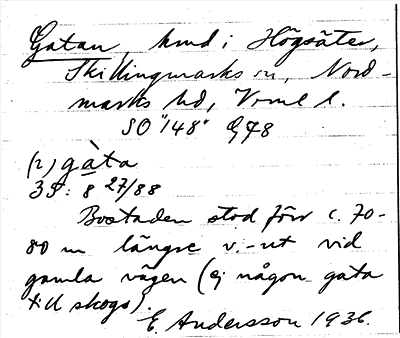 Gatan, hmd i Högsäter,
Skillingmarks sn, Nord-
marks hd, Vrml l.
SO "148" G78
(2) gàta
35: 8 27/88
Bostaden stod förr c. 70-
80 m längre v.-ut vid
gamla vägen (ej någon gata
till skogs).
E. Andersson 1936.